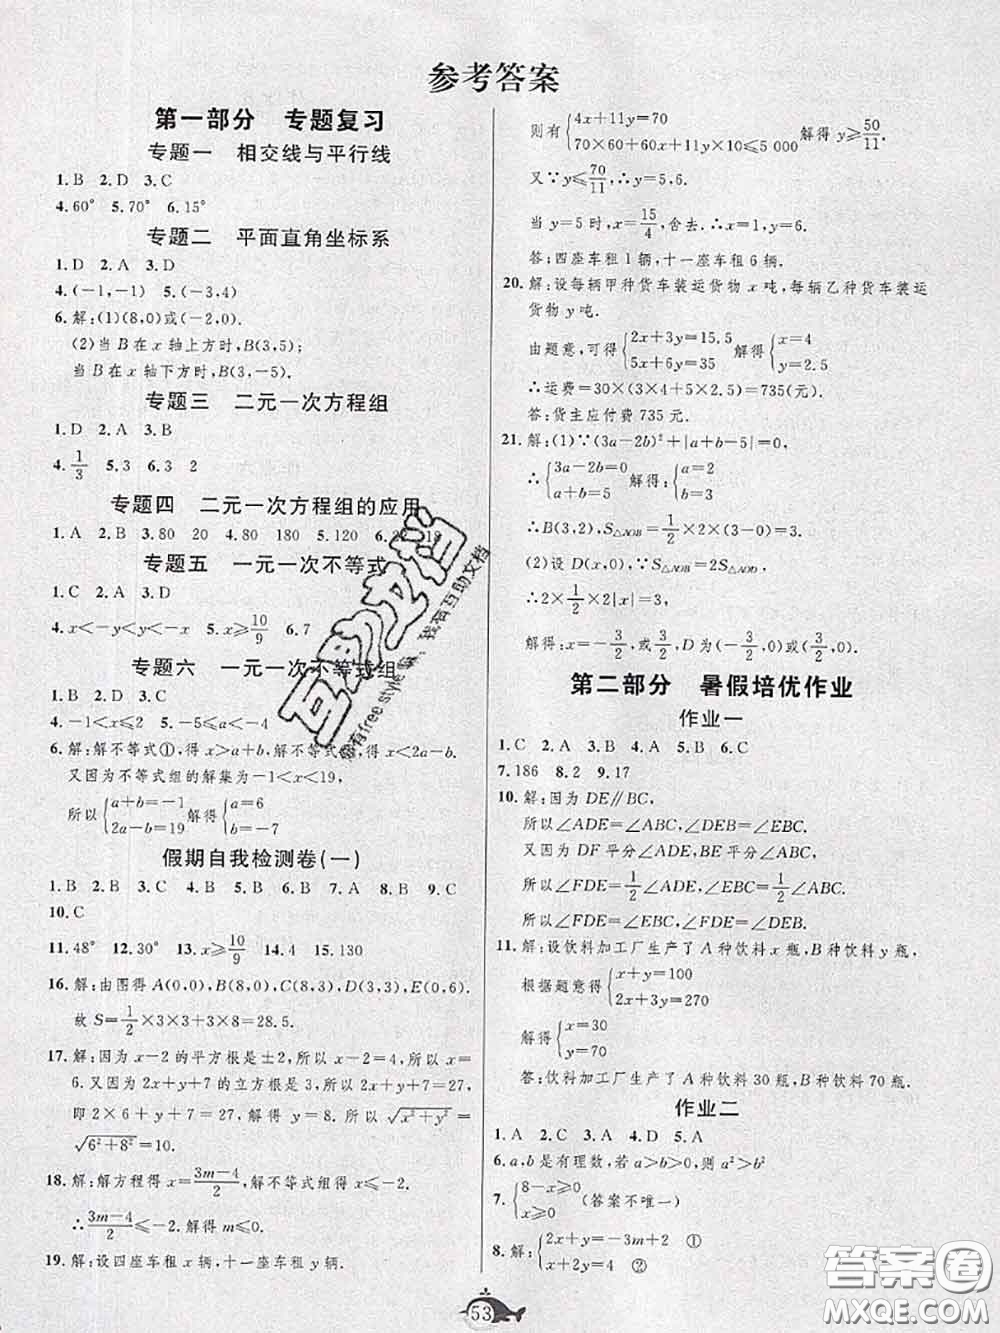 参考答案
第一部分 专题复习
专题一 相交线与平行线
1.B 2.D 3.C
4.60° 5.70° 6.15°
专题二 平面直角坐标系
1.D 2.A 3.D
4.(-1,-1) 5.(-3,4)
6.解:(1)(8,0)或(-2,0).
(2)当B在x轴上方时,B(3,5);
当B在x轴下方时,B(3,-5).
专题三 二元一次方程组
1.D 2.A 3.B
4.1/3 5.3 6.3 2
专题四 二元一次方程组的应用
1.A 2.B 3.80 20 4.80 180 5.120
专题五 一元一次不等式
1.D 2.A 3.D
4.x<-y<y<-x 5.x≥10/9 6.7
专题六 一元一次不等式组
1.B 2.D 3.A
4.-1<x≤2 5.-5≤a<-4
6.解:解不等式①,得x>a+b,解不等式②,得x<2a-b.
又因为不等式组的解集为-1<x<19,
所以{a+b=-1 2a-b=19 解得{a=6 b=-7
假期自我检测卷(一)
1.B 2.B 3.C 4.B 5.B 6.B 7.A 8.B 9.C
10.C
11.48° 12.30° 13.x≥10/9 14.4 15.130
16.解:由图得A(0,0),B(8,0),C(8,3),D(3,3),E(0,6).
故S=1/2×3×3+3×8=28.5.
17.解:因为x-2的平方根是±2,所以x-2=4,所以x=
6.又因为2x+y+7的立方根是3,所以2x+y+7=27,
即2×6+y+7=27,解得y=8.所以√(x²+y²)=
√(6²+8²)=10.
18.解:解方程得x=(3m-4)/2,解不等式组得x≤-2.
∴(3m-4)/2≤-2.解得m≤0.
19.解:设四座车租x辆,十一座车租y辆.
则有{4x+11y=70 70×60+60x+10y×11≤5 000 解得y≥50/11.
又∵y≤70/11,∴y=5,6.
当y=5时,x=15/4,舍去.∴x=1,y=6.
答:四座车租1辆,十一座车租6辆.
20.解:设每辆甲种货车装运货物x吨,每辆乙种货车装运
货物y吨.
由题意,可得{2x+3y=15.5 5x+6y=35 解得{x=4 y=2.5
∴运费=30×(3×4+5×2.5)=735(元).
答:货主应付费735元.
21.解:(1)∵(3a-2b)²+|a+b-5|=0,
∴{3a-2b=0 a+b=5 解得:{a=2 b=3
∴B(3,2),S△AOB=1/2×2×(3-0)=3
(2)设D(x,0),∵S△AOB=2S△AOD,
∴2×1/2×2|x|=3,
解得:x=-3/2,或3/2,D为(-3/2,0)或(3/2,0)
第二部分 暑假培优作业
作业一
1.C 2.A 3.B 4.A 5.B 6.C
7.186 8.2 9.17
10.解:因为DE∥BC,
所以∠ADE=∠ABC,∠DEB=∠EBC.
又因为DF平分∠ADE,BE平分∠ABC,
所以∠FDE=1/2∠ADE,∠EBC=1/2∠ABC.
所以∠FDE=∠EBC,所以∠FDE=∠DEB.
11.解:设饮料加工厂生产了A种饮料x瓶,B种饮料y瓶.
根据题意得{x+y=100 2x+3y=270
解得{x=30 y=70
答:饮料加工厂生产了A种饮料30瓶,B种饮料70瓶.
作业二
1.A 2.C 3.A 4.D 5.A
6.a,b是有理数,若a>b>0,则a²>b²
7.{8-x≥0 x≥0 (答案不唯一)
8.解:{2x+y=-3m+2 ① x+2y=4 ②
53
互助文档
我有free style 嗷,我有互助文档
答案圈
MXQE.COM